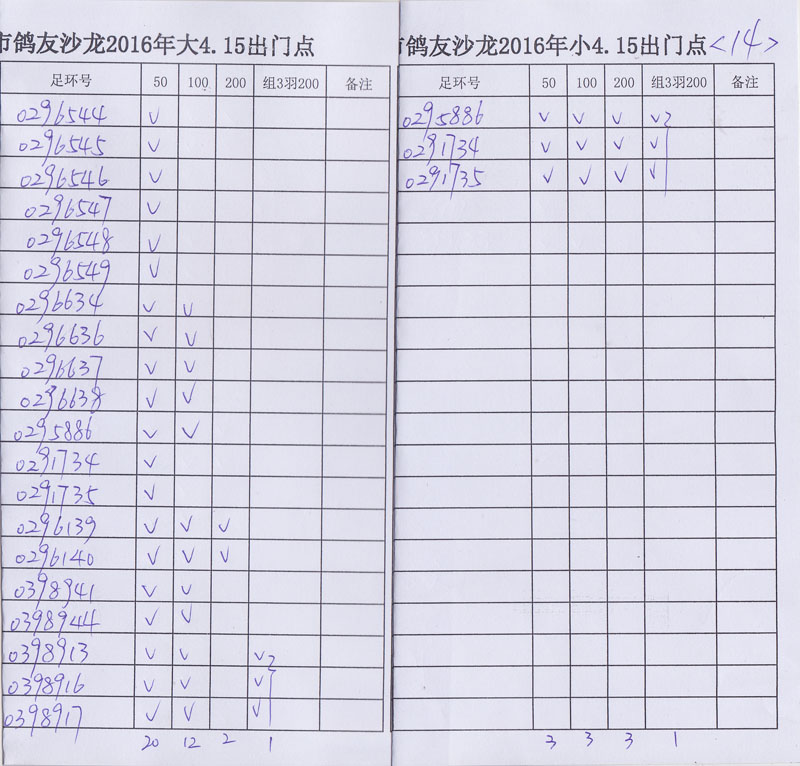 市鸽友沙龙2016年大4.15出门点
足环号 50 100 200 组3羽200 备注
0296544 V
0296545 V
0296546 V
0296547 V
0296548 V
0296549 V
0296634 V V
0296636 V V
0296637 V V
0296638 V V
0295886 V V
0291734 V
0291735 V
0296139 V V V
0296140 V V V
0398941 V V
0398944 V V
0398913 V V V
0398916 V V V
0398917 V V V
20 12 2 1
市鸽友沙龙2016年小4.15出门点 <14>
足环号 50 100 200 组3羽200 备注
0295886 V V V V
0291734 V V V V
0291735 V V V V
3 3 3 1